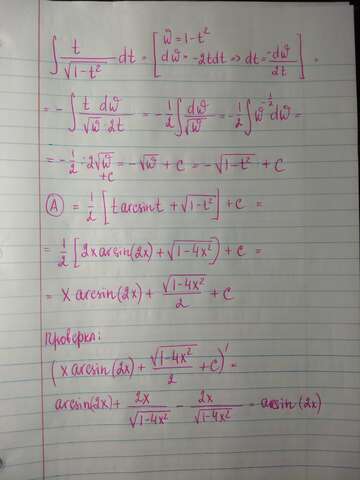 ∫ t/√(1-t²) dt = [ω = 1-t²
dω = -2tdt => dt = -dω/2t] =
= -∫ t dω/(√ω · 2t) = -1/2 ∫ dω/√ω = -1/2 ∫ ω^(-1/2) dω =
= -1/2 · 2√ω + C = -√ω + C = -√(1-t²) + C
(A) = 1/2 [t arcsin t + √(1-t²)] + C =
= 1/2 [2x arcsin(2x) + √(1-4x²)) + C =
= x arcsin(2x) + √(1-4x²)/2 + C
Проверка:
(x arcsin(2x) + √(1-4x²)/2 + C)' =
arcsin(2x) + 2x/√(1-4x²) - 2x/√(1-4x²) = arcsin (2x)